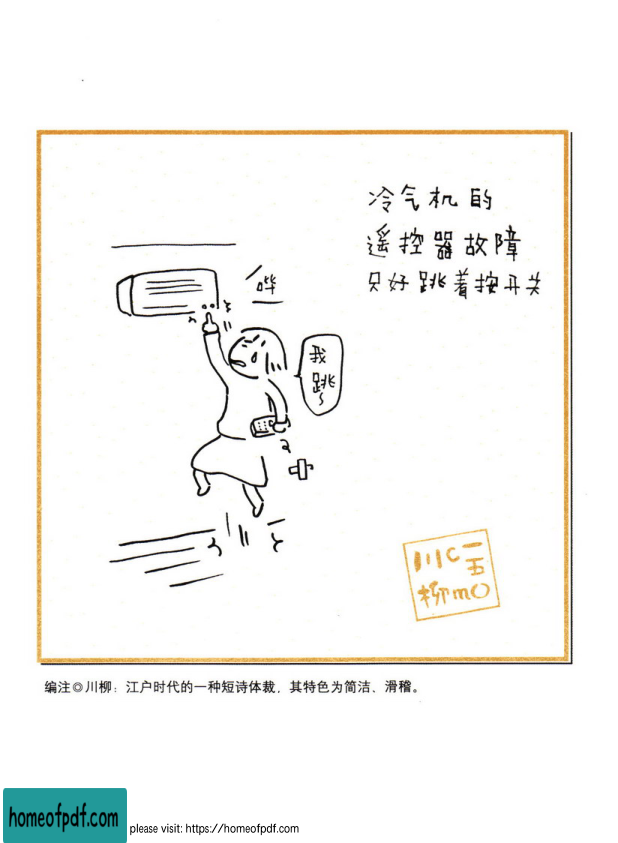 冷气机的
遥控器故障
只好跳着按开关
哗
我跳~
川柳
一五〇cm
编注◎川柳：江户时代的一种短诗体裁，其特色为简洁、滑稽。
homeofpdf.com
please visit: https://homeofpdf.com